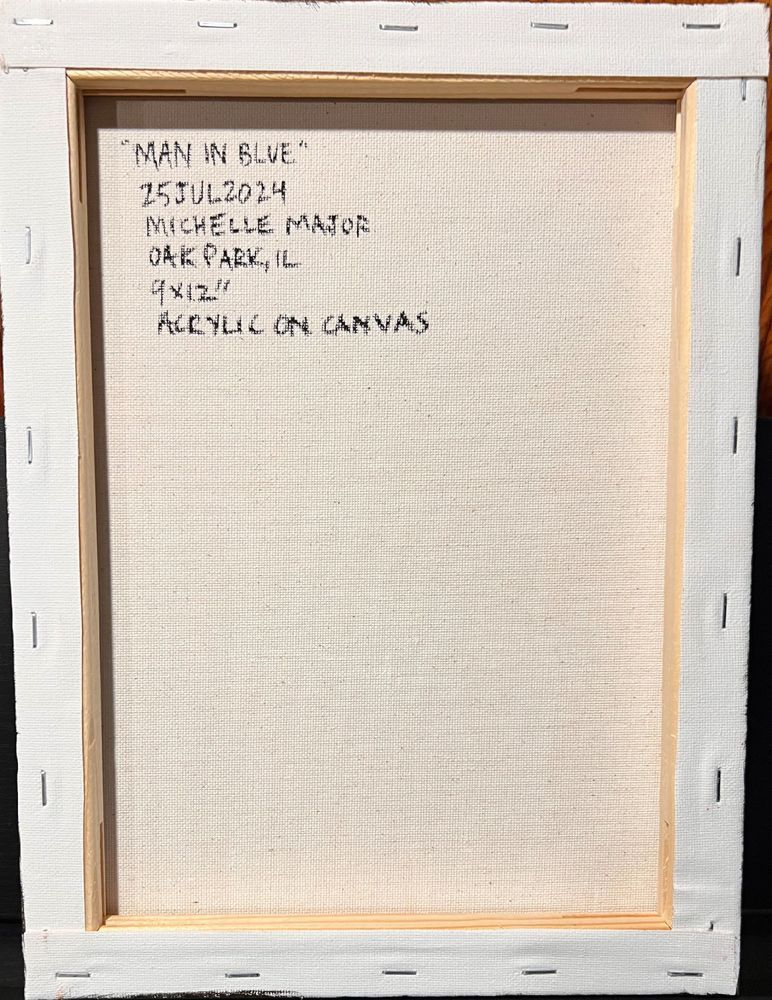 "MAN IN BLUE"
25JUL2024
MICHELLE MAJOR
OAK PARK, IL
9x12"
ACRYLIC ON CANVAS